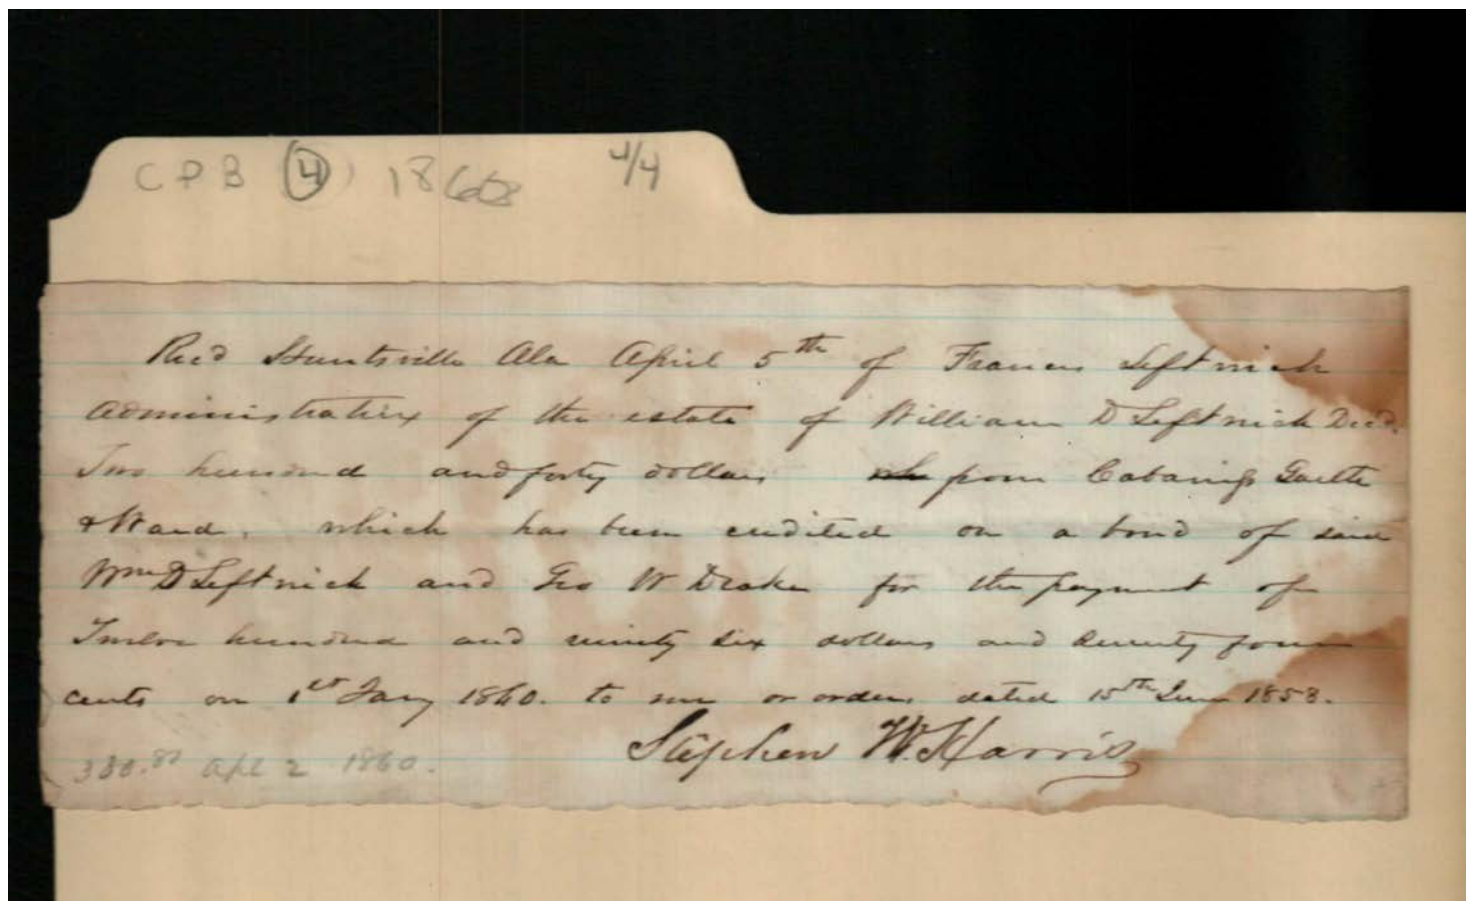 CPB (4) 1860 4/4
Recd Huntsville Ala April 5th of Frances Leftwich
Administratrix of the estate of William D Leftwich Decd.
Two hundred and forty dollars from Cabaniss
& Ward, which has been credited on a bond of said
Wm D Leftwich and Geo W Drake for the payment of
Twelve hundred and ninety six dollars and seventy four
cents on 1st Jany 1860. to me or order, dated 15th 1858.
Stephen W. Harris
apl 2 1860.